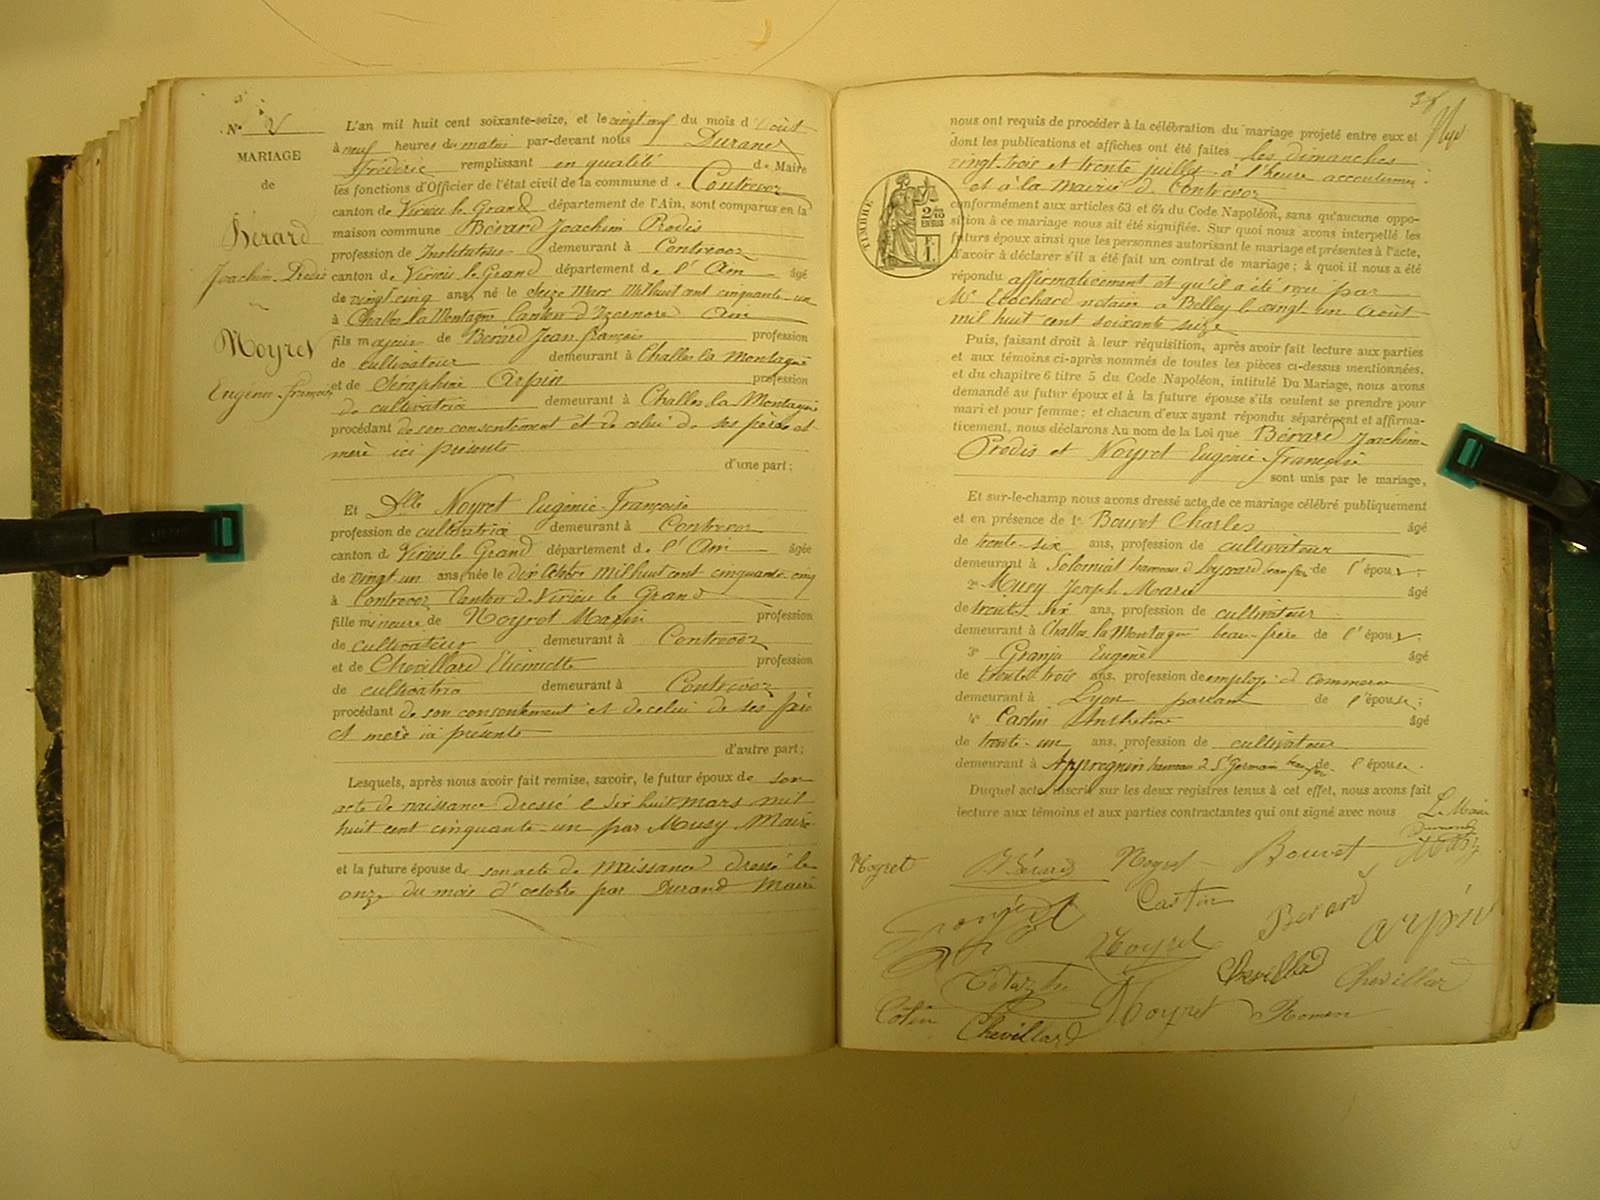 N° V
MARIAGE
de
Bérard
Joachim Prodis
Noyret
Eugénie françoise
L'an mil huit cent soixante-seize, et le vingt neuf du mois d'Août
à neuf heures du matin par-devant nous Durand
frédéric remplissant en qualité de Maire
les fonctions d'Officier de l'état civil de la commune de Contrevoz
canton de Virieu le Grand département de l'Ain, sont comparus en la
maison commune Bérard Joachim Prodis
profession de Instituteur demeurant à Contrevoz
canton de Virieu le Grand département de l'Ain âgé
de vingt cinq ans, né le seize Mars Mil huit cent cinquante-un
à Challes la Montagne Canton d'Izernore Ain
fils majeur de Bérard Jean françois profession
de cultivateur demeurant à Challes la Montagne
et de Séraphine Arpin profession
de cultivatrice demeurant à Challes la Montagne
procédant de son consentement et de celui de ses père et
mère ici présents
d'une part;
Et Dlle Noyret Eugénie Françoise
profession de cultivatrice demeurant à Contrevoz
canton de Virieu le Grand département de l'Ain âgée
de vingt un ans, née le dix Octobre mil huit cent cinquante-cinq
à Contrevoz Canton de Virieu le Grand
fille mineure de Noyret Marin profession
de cultivateur demeurant à Contrevoz
et de Chevillard Etiennette profession
de cultivatrice demeurant à Contrevoz
procédant de son consentement et de celui de ses père
et mère ici présents
d'autre part;
Lesquels, après nous avoir fait remise, savoir, le futur époux de son
acte de naissance dressé le dix huit mars mil
huit cent cinquante-un par Musy Maire
et la future épouse de son acte de naissance dressé le
onze du mois d'octobre par Durand Maire
nous ont requis de procéder à la célébration du mariage projeté entre eux et
dont les publications et affiches ont été faites les dimanches
vingt-trois et trente juillet à l'heure accoutumée
et à la mairie de Contrevoz
TIMBRE
conformément aux articles 63 et 64 du Code Napoléon, sans qu'aucune oppo-
sition à ce mariage nous ait été signifiée. Sur quoi nous avons interpellé les
futurs époux ainsi que les personnes autorisant le mariage et présentes à l'acte,
d'avoir à déclarer s'il a été fait un contrat de mariage; à quoi il nous a été
répondu affirmativement et qu'il a été reçu par
Me Ecochard notaire à Belley le vingt un Août
mil huit cent soixante seize
Puis, faisant droit à leur réquisition, après avoir fait lecture aux parties
et aux témoins ci-après nommés de toutes les pièces ci-dessus mentionnées,
et du chapitre 6 titre 5 du Code Napoléon, intitulé Du Mariage, nous avons
demandé au futur époux et à la future épouse s'ils veulent se prendre pour
mari et pour femme; et chacun d'eux ayant répondu séparément et affirma-
tivement, nous déclarons Au nom de la Loi que Bérard Joachim-
Prodis et Noyret Eugénie-Françoise
sont unis par le mariage,
Et sur-le-champ nous avons dressé acte de ce mariage célébré publiquement
et en présence de 1° Bouvet Charles âgé
de trente-six ans, profession de cultivateur
demeurant à hameau de beau frère de l'époux;
2° Musy Joseph Marie âgé
de trente six ans, profession de cultivateur
demeurant à Challes la Montagne beau-frère de l'époux;
3° Granju Eugène âgé
de trente trois ans, profession de employé de commerce
demeurant à Lyon parent de l'épouse;
4° Castin Anthelme âgé
de trente-un ans, profession de cultivateur
demeurant à Appregnin hameau de St Germain de l'épouse.
Duquel acte, inscrit sur les deux registres tenus à cet effet, nous avons fait
lecture aux témoins et aux parties contractantes qui ont signé avec nous Le Maire
Noyret Bérard Noyret Bouvet
Castin Bérard Arpin
Noyret Chevillard Chevillard
Cotin Noyret Romen
Chevillard